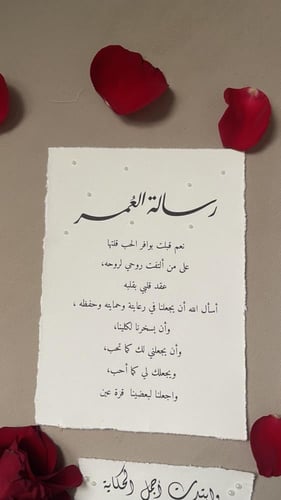 رسالة العُمر
نعم قبلت بوافر الحب قلتها
على من ألتفت روحي لروحه،
عقد قلبي بقلبه
أسأل الله أن يجعلنا في رعايتة وحمايته وحفظه ،
وأن يسخرنا لكلينا،
وأن يجعلني لك كما تحب،
ويجعلك لي كما أحب،
واجعلنا لبعضينا قرة عين
وابتدت أجمل الحكاية